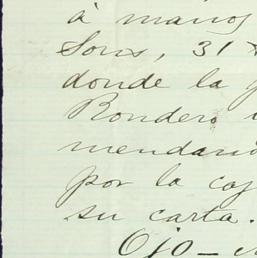 á manos
Sons, 31
donde la
Rondero
mendand
por la caj
su carta.
Ojo —